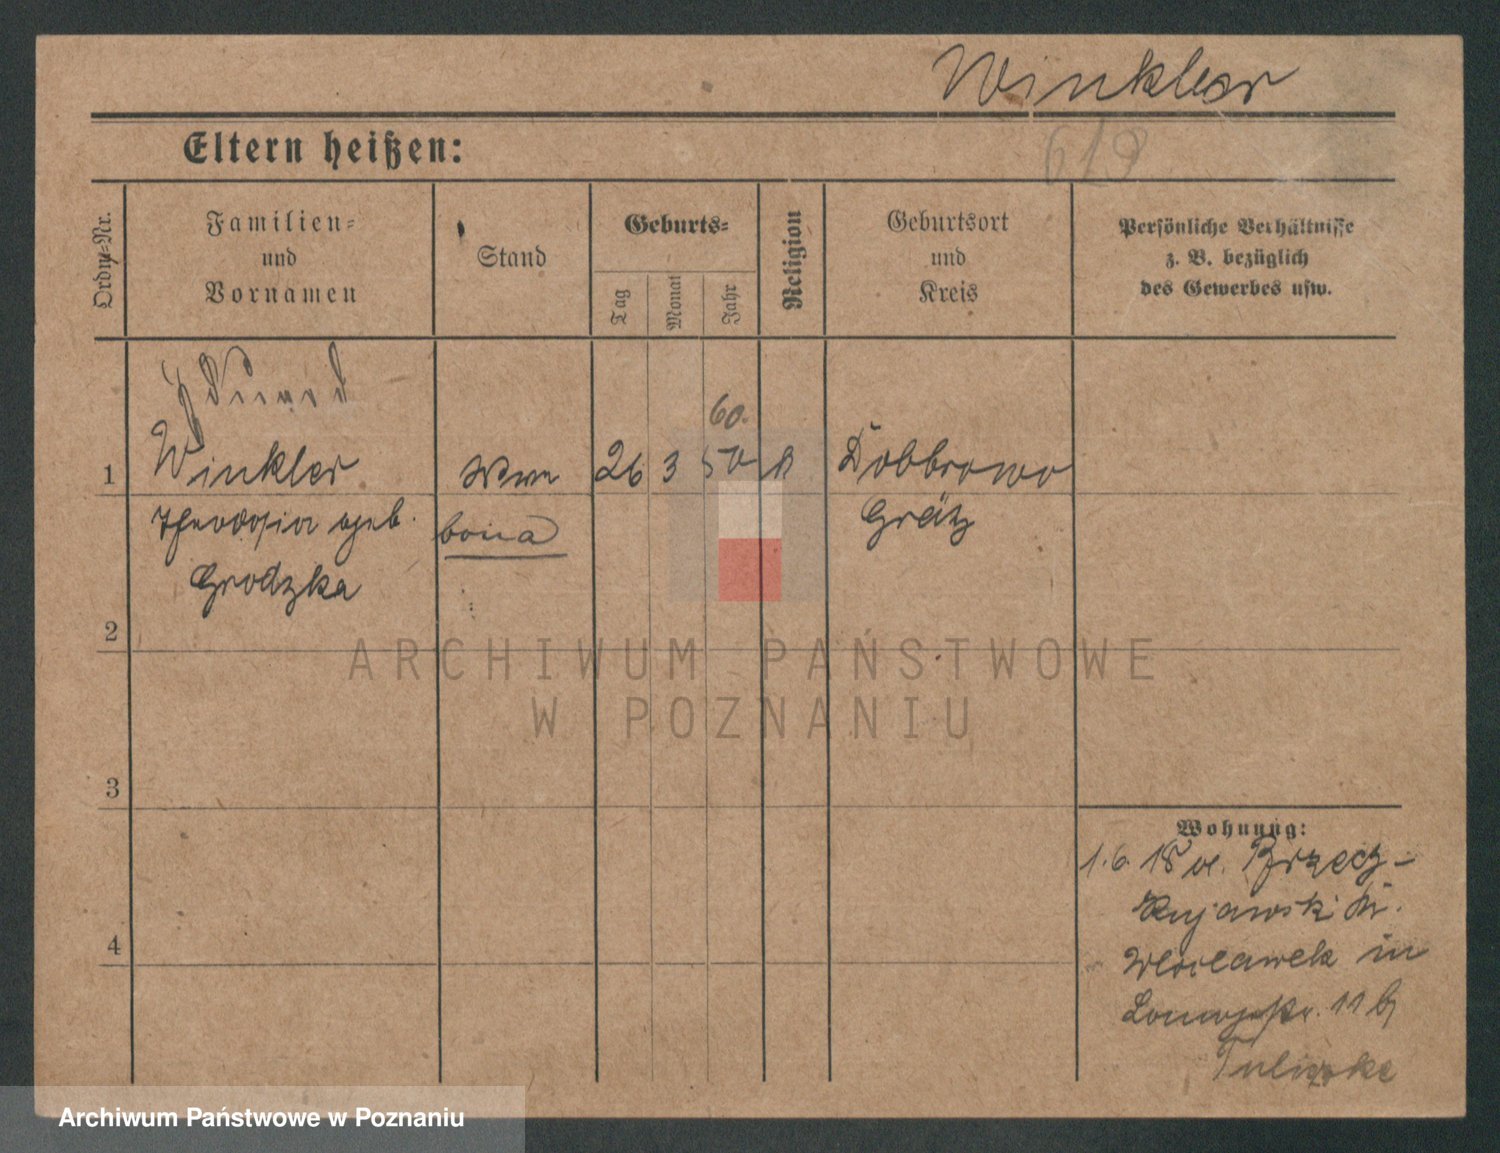 Winkler
Eltern heißen:
619
Ordn.-Nr.
Familien-
und
Vornamen
Stand
Geburts-
Tag
Monat
Jahr
Religion
Geburtsort
und
Kreis
Persönliche Verhältnisse
z. B. bezüglich
des Gewerbes usw.
60.
1 Winkler Wwe 26 3 50 k Dobbrowo
Theodosia geb. bona Grätz
Grodzka
2
ARCHIWUM PAŃSTWOWE
W POZNANIU
3
Wohnung:
1.6.18 v. Brzecz-
Kujawski Kr.
4
Wloclawek in
11 b
Archiwum Państwowe w Poznaniu